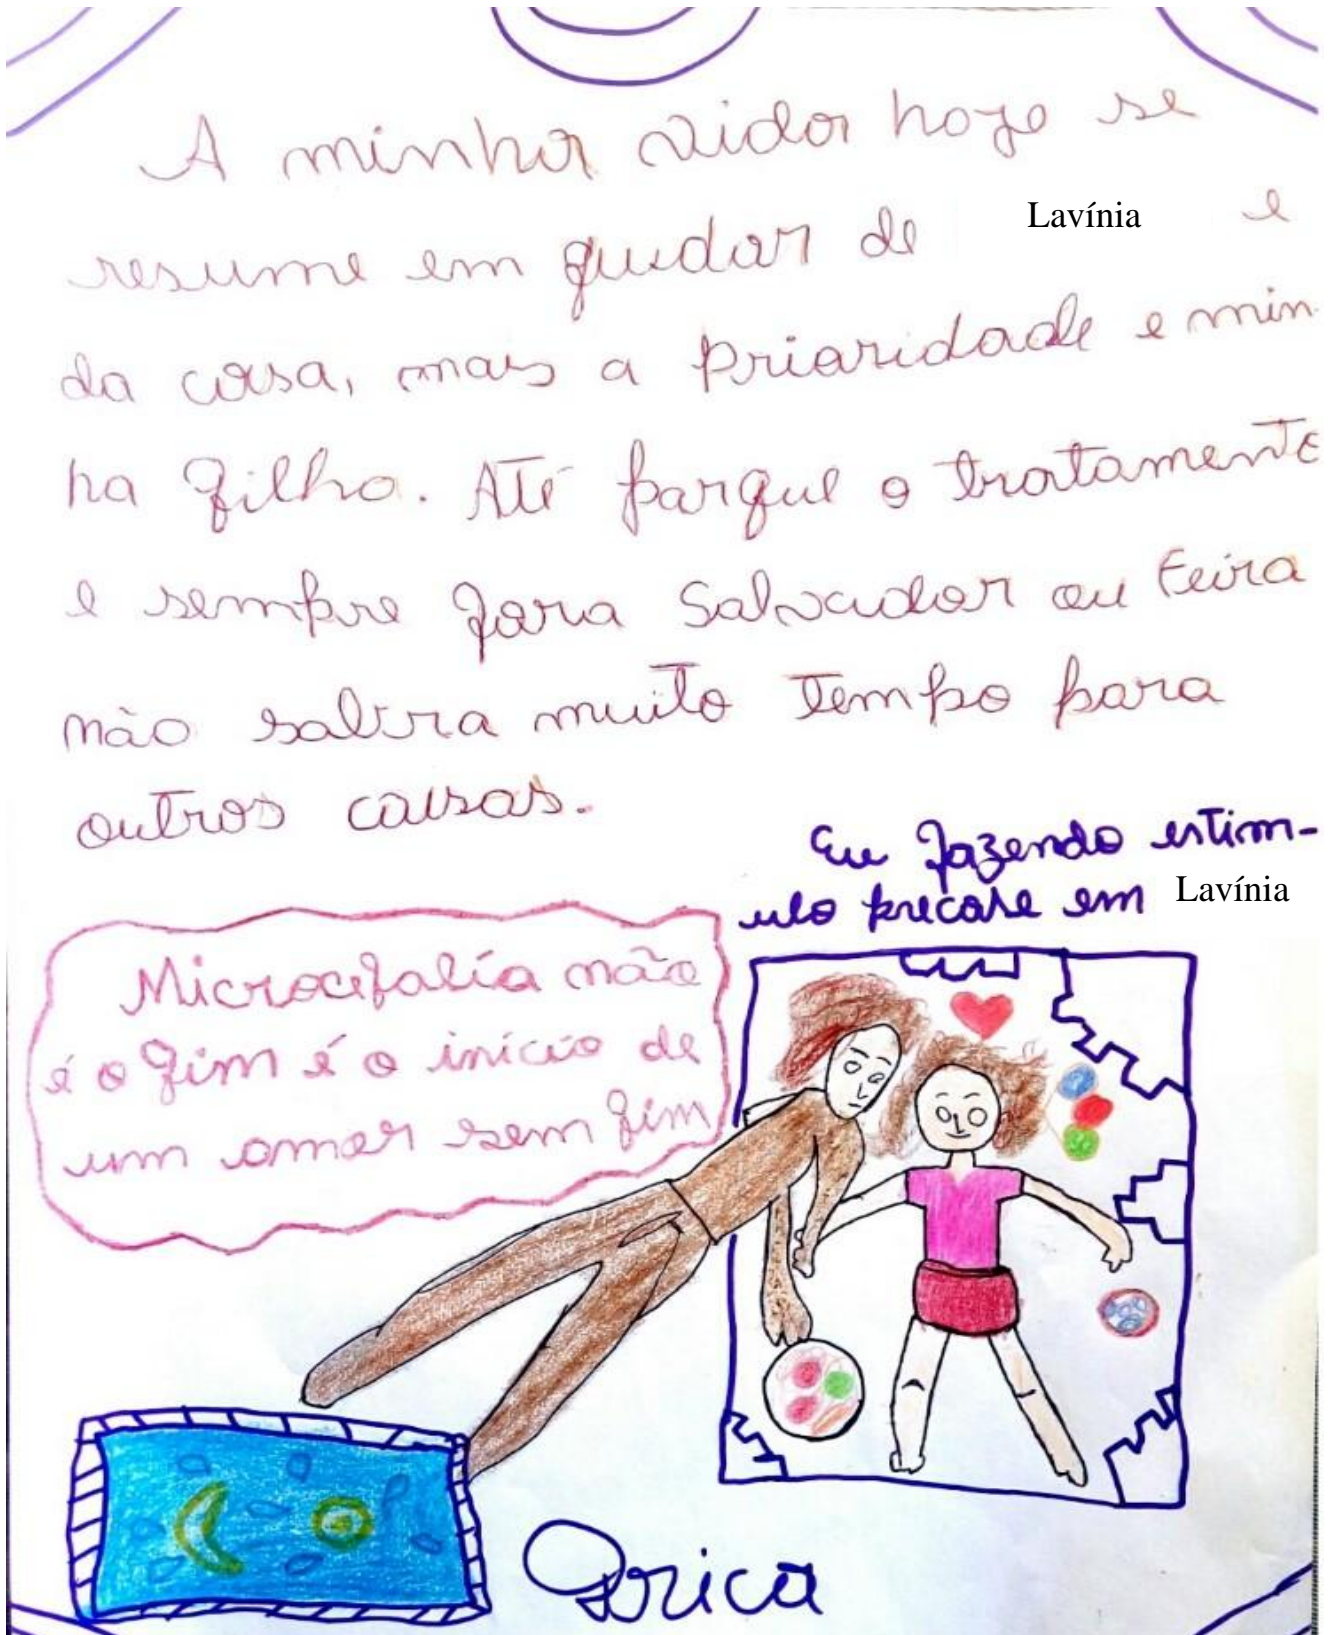 A minha vida hoje se
resume em quidar de Lavínia e
da casa, mais a prioridade e min
ha filha. Até porque o tratamento
e sempre fora Salvador ou Feira
não sobra muito tempo para
outros coisas.
Eu fazendo estim-
ulo precose em Lavínia
Microcefalia não
é o fim é o início de
um amor sem fim